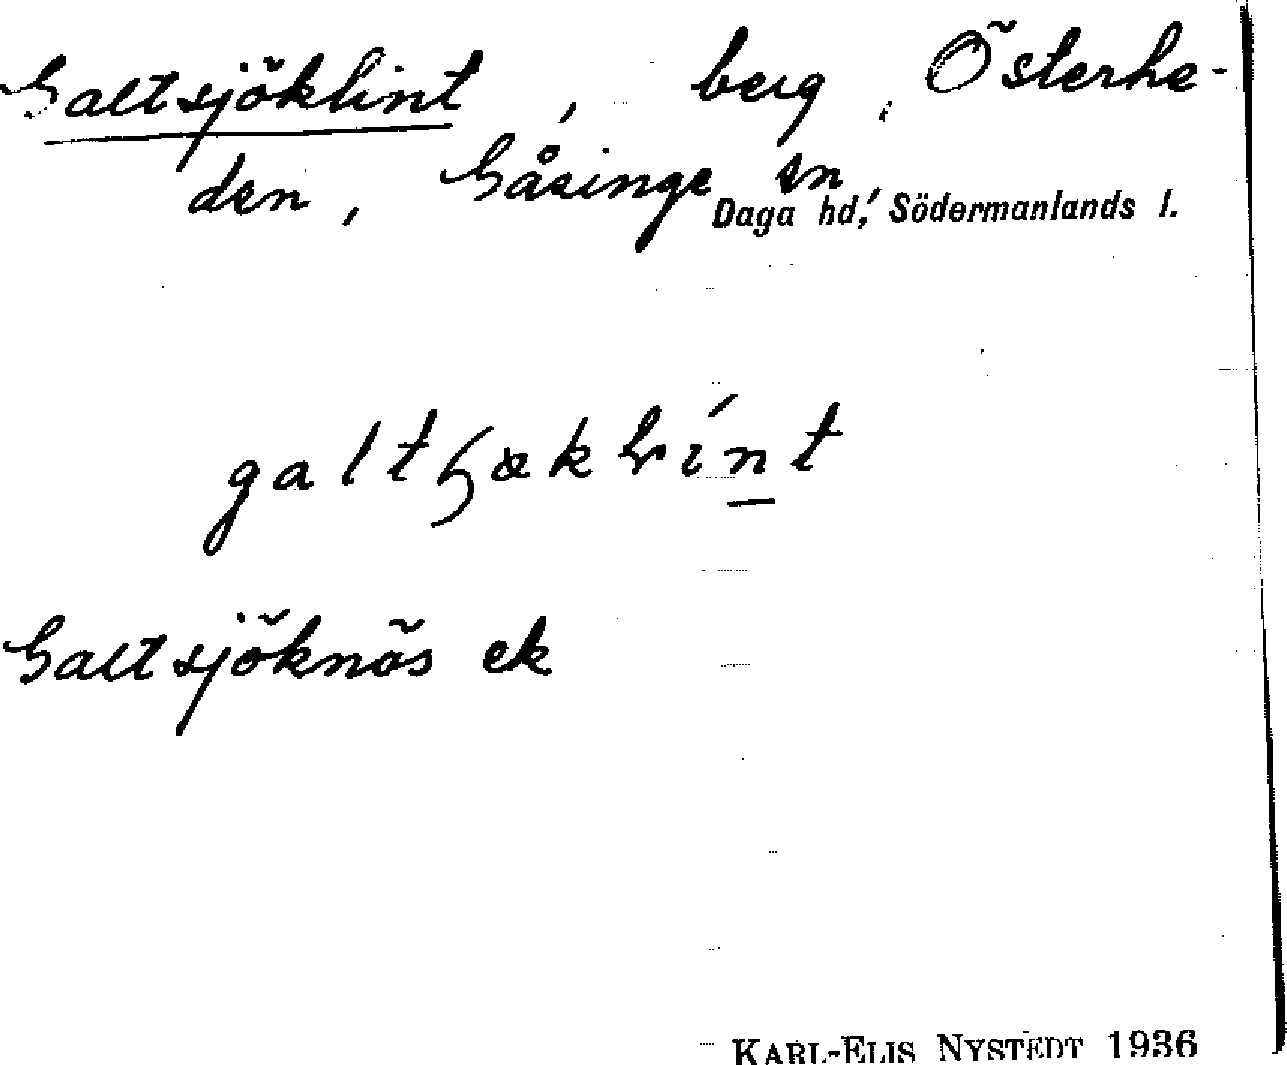 Galtsjöklint, berg, Österhe-
den, Gåsinge sn,
Daga hd, Södermanlands l.
galtꜧækli´nt
Galtsjöknös ek
KARL-ELIS NYSTEDT 1936